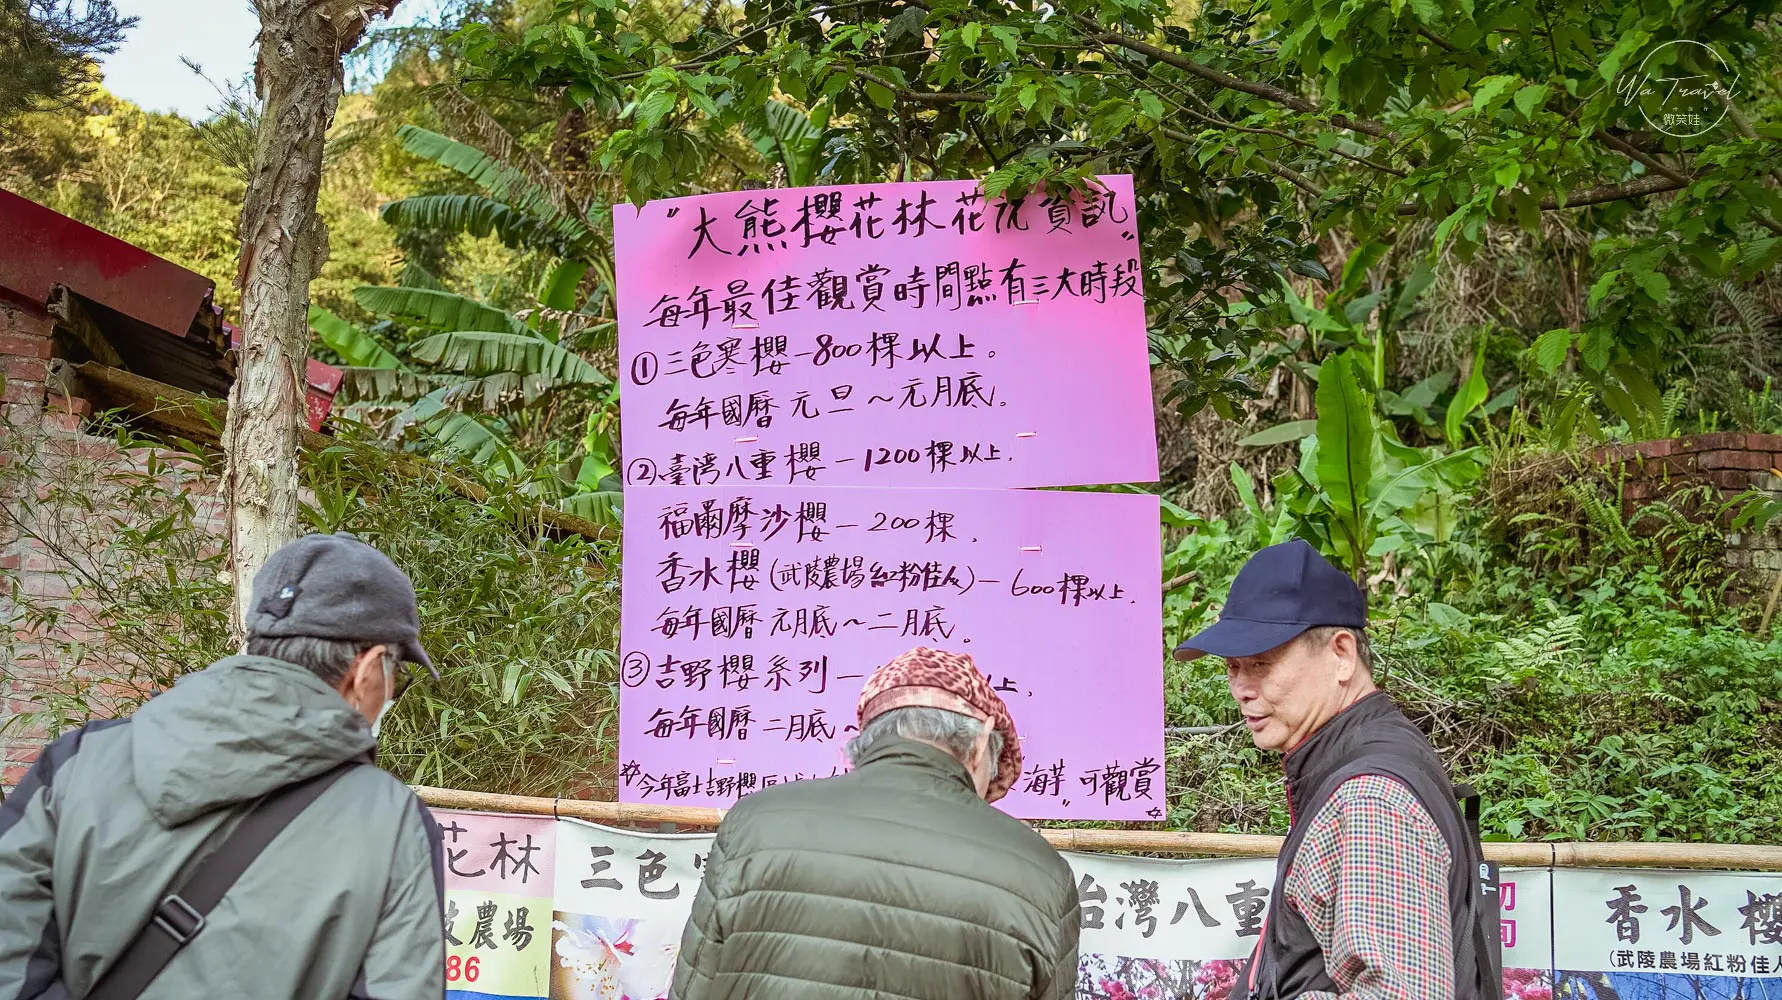 Wa Travel
微笑娃
"大熊櫻花林花況資訊"
每年最佳觀賞時間點有三大時段
①三色寒櫻-800棵以上。
每年國曆元旦~元月底。
②臺湾八重櫻-1200棵以上.
福爾摩沙櫻-200棵.
香水櫻(武陵農場紅粉佳人)-600棵以上.
每年國曆元月底~二月底。
③吉野櫻系列- 上.
每年國曆二月底~
☆今年富士吉野櫻區 海芋"可觀賞☆
花林
農場
86
三色
台灣八重
初旬
香水櫻
(武陵農場紅粉佳人